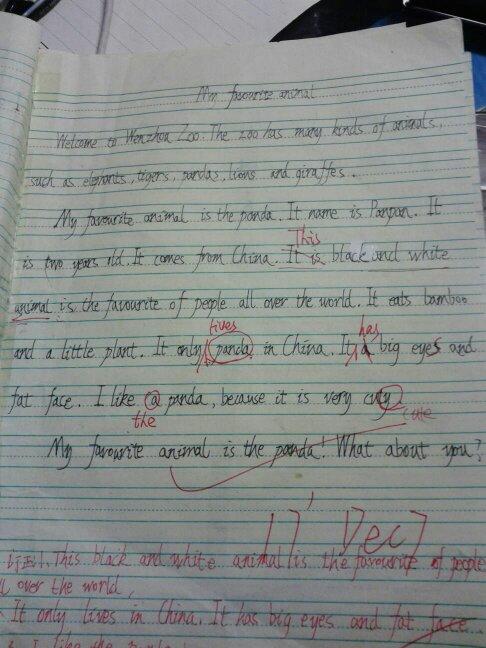 My favourite animal
Welcome to Wenzhou Zoo. The zoo has many kinds of animals,
such as elephants, tigers, pandas, lions and giraffes.
My favourite animal is the panda. It name is Panpan. It
This
is two years old. It comes from China. It is black and white
animal is the favourite of people all over the world. It eats bamboo
lives has
and a little plant. It only panda in China. It a big eyes and
fat face. I like a panda, because it is very cuty
the cute
My favourite animal is the panda! What about you?
17' Dec 7
订正: This black and white animal is the favourite of people
over the world.
It only lives in China. It has big eyes and fat face.
I like the